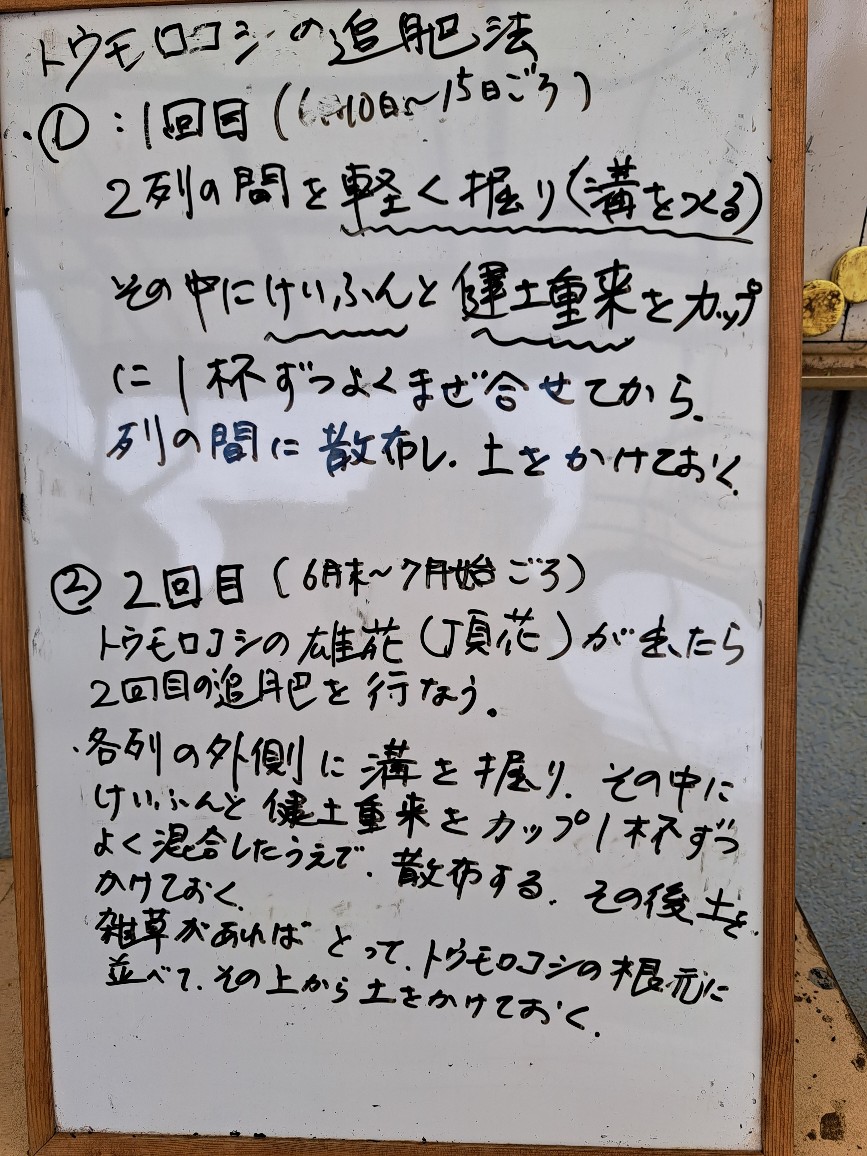 トウモロコシの追肥法
・①：1回目（6月10日～15日ごろ）
2列の間を軽く掘り（溝をつくる）
その中にけいふんと健土重来をカップ
に1杯ずつよくまぜ合せてから、
列の間に散布し、土をかけておく、
② 2回目（6月末～7月始ごろ）
トウモロコシの雄花（頂花）が出たら
2回目の追肥を行なう。
・各列の外側に溝を掘り、その中に
けいふんと健土重来をカップ1杯ずつ
よく混合したうえで、散布する、その後土を
かけておく、
雑草があればとって、トウモロコシの根元に
並べて、その上から土をかけておく、